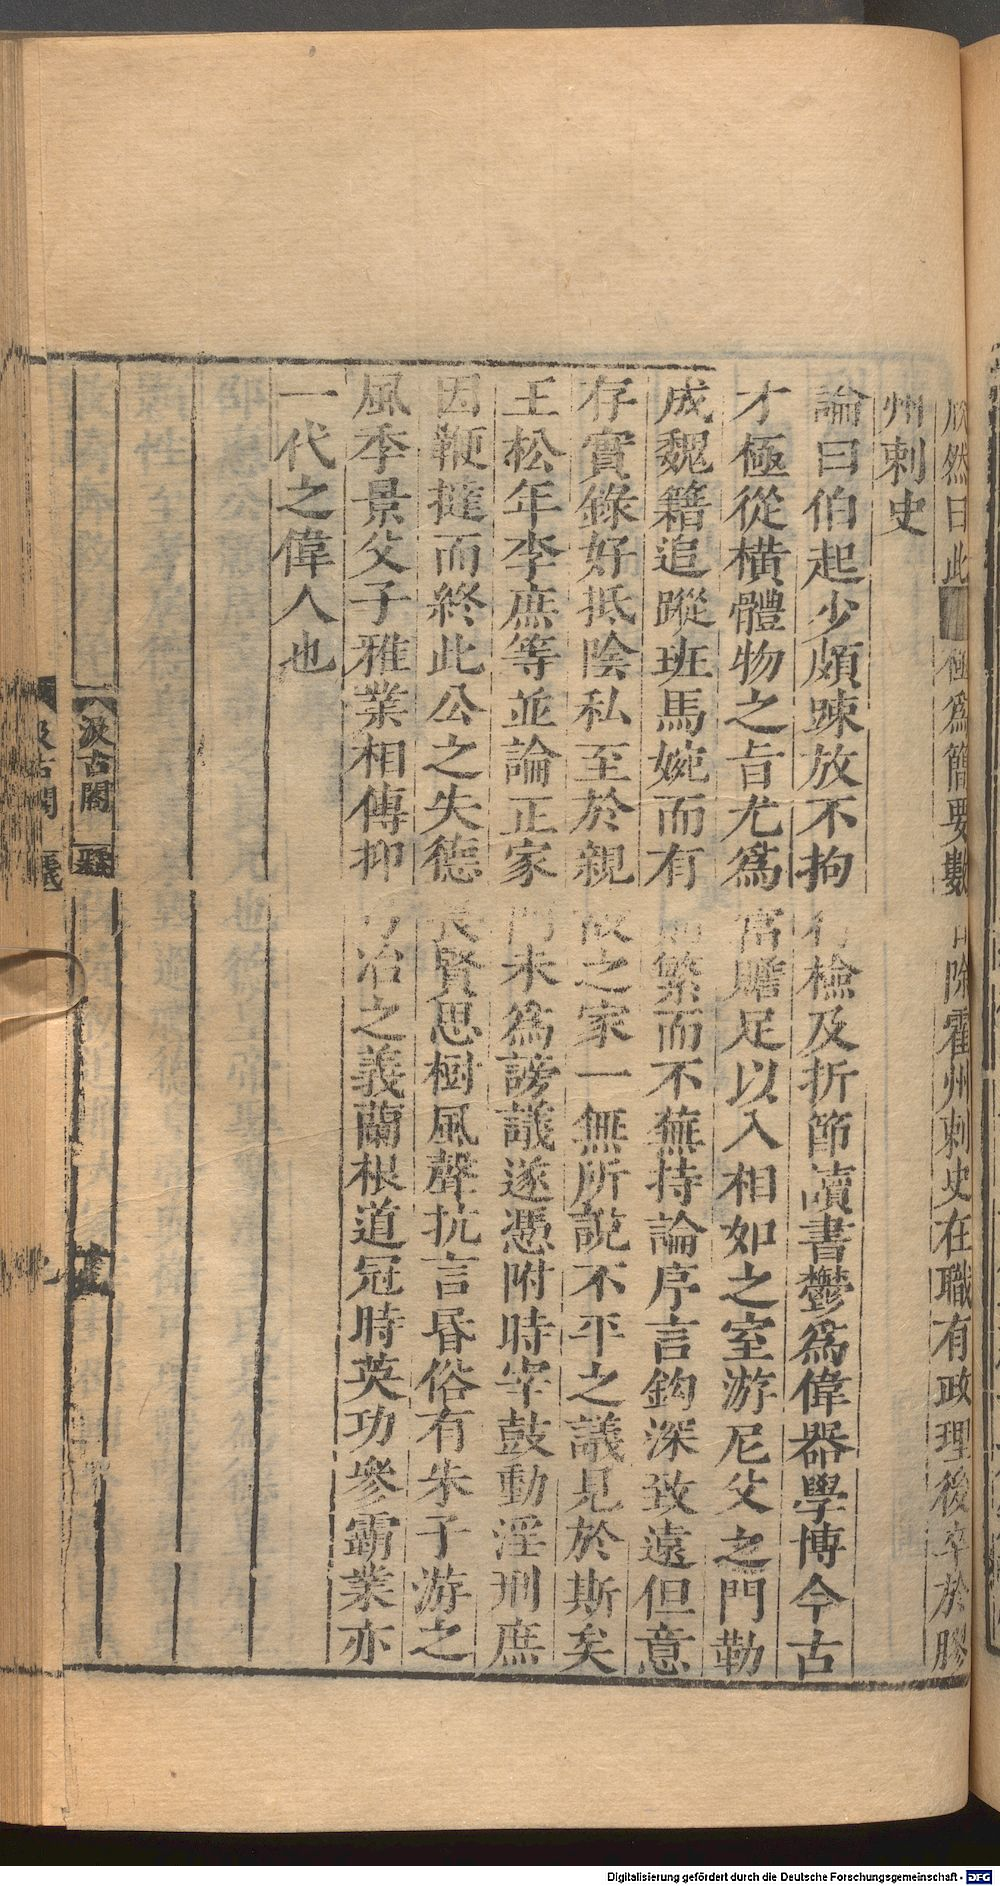 欣然曰此極爲簡要數日除霍州刺史在職有政理後卒於膠
州刺史
論曰伯起少頗踈放不拘行檢及折節讀書鬱爲偉器學博今古
才極從橫體物之旨尤爲富贍足以入相如之室游尼父之門勒
成魏籍追蹤班馬婉而有則繁而不蕪持論序言鈎深致遠但意
存實錄好抵陰私至於親故之家一無所說不平之議見於斯矣
王松年李庶等並論正家門未爲謗議遂憑附時宰鼓動淫刑庶
因鞭撻而終此公之失德長賢思樹風聲抗言昏俗有朱子游之
風季景父子雅業相傳抑弓冶之義蘭根道冠時英功參霸業亦
一代之偉人也
汲古閣
汲古閣
Digitalisierung gefördert durch die Deutsche Forschungsgemeinschaft - DFG